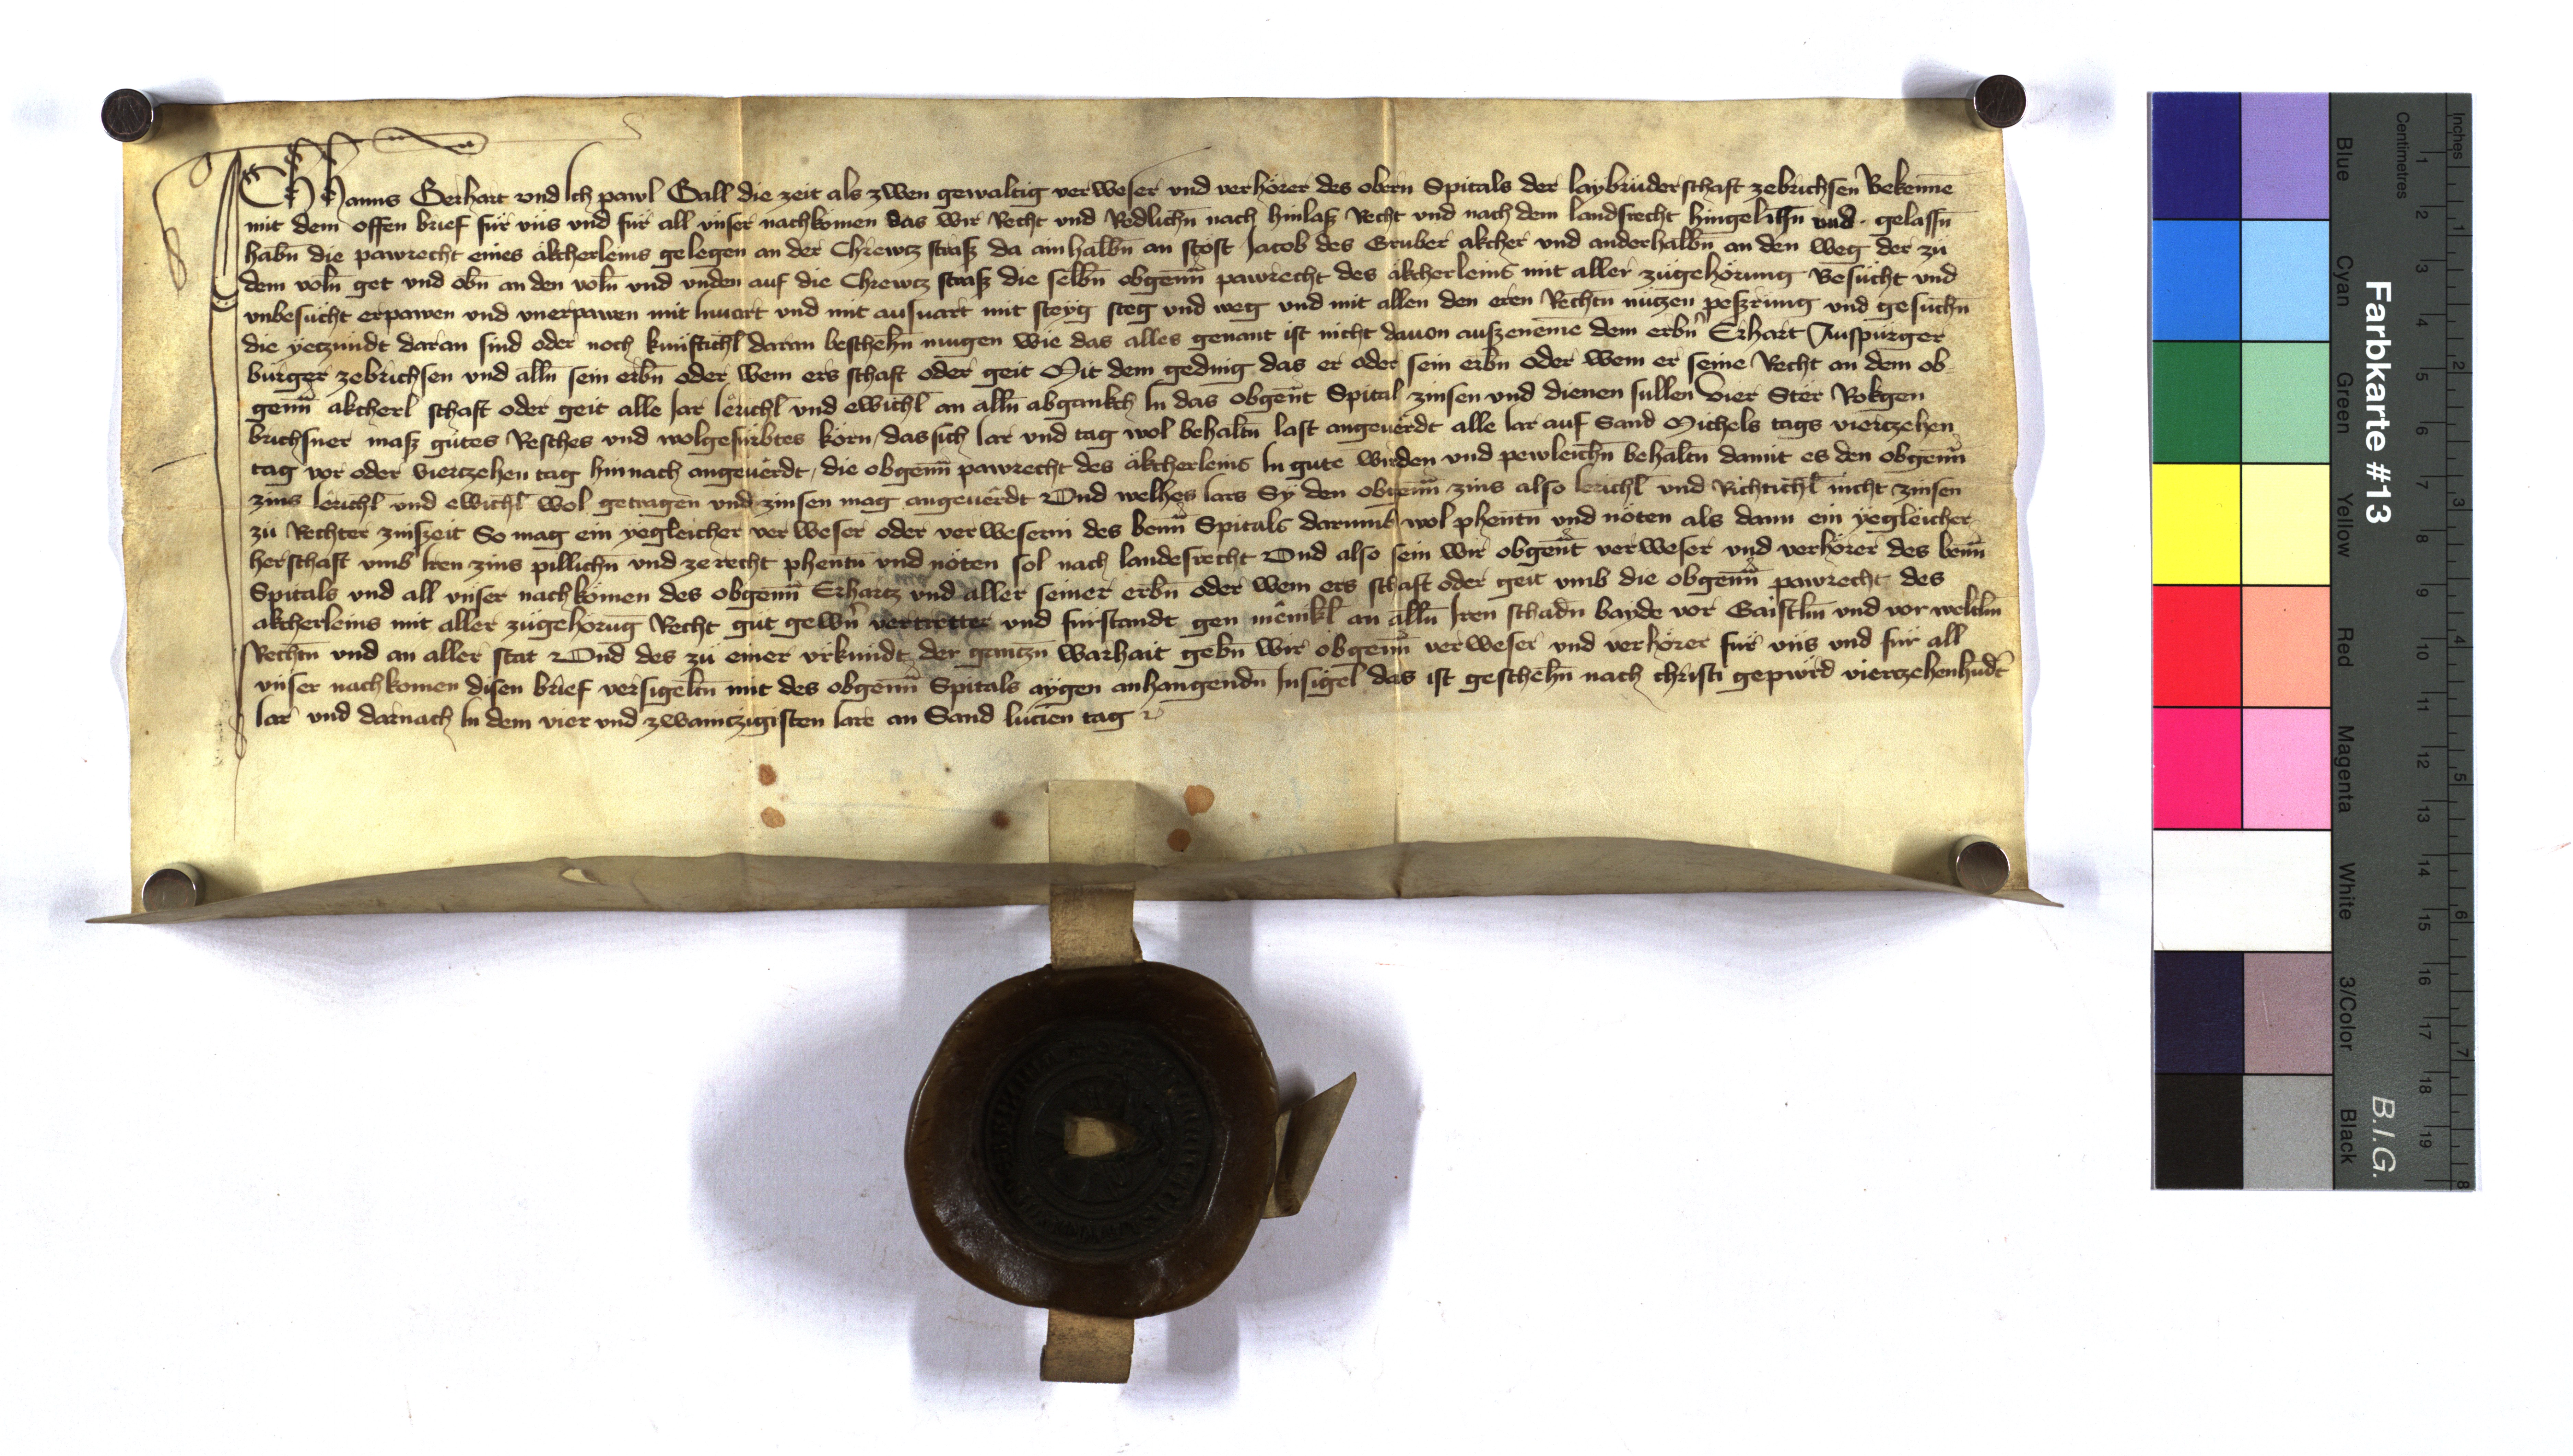 Ich Hanns Gerhart vnd Ich pawl Gall die zeit als zwen gewaltig verweser vnd verhörer des obern Spitals der laybrüderschaft zebrichsen Bekenne
mit dem offen brief für vns vnd für all vnser nachkomen das wir Recht vnd Redlichn̄ nach hinlaß Recht vnd nach dem landsrecht hingelihn̄ vnd gelassn̄
habn̄ die pawrecht eines äkcherleins gelegen an der Chrewtz straß da ainhalbn̄ an stost Jacob des Gruber akcher vnd anderhalbn̄ an den weg der zu
dem voln̄ get vnd obn̄ an den voln̄ vnd vnden auf die Chrewtz straß die selbn̄ obgenn̄ pawrecht des äkcherleins mit aller zugehörung Besücht vnd
vnbesücht erpawen vnd vnerpawen mit Inuart vnd mit ausuart mit steyg steg vnd weg vnd mit allen den eren Rechtn̄ nützen peßrung vnd gesüchn̄
die yetzundt daran sind oder noch kunftichl daran beschehn̄ mugen wie das alles genant ist nicht dauon auszeneme dem erbn̄ Erhart Auspurger
burger zebrichsen vnd alln̄ sein erbn̄ oder wem ers schaft oder geit Mit dem geding das er oder sein erbn̄ oder wem er seine Recht an dem ob-
genn̄ äkcherl schaft oder geit alle Jar Iërichl vnd ewichl an alln̄ abgankch In das obgen̄t Spital zinsen vnd dienen sullen Vier Ster Rokgen
brichsner maß gütes Resches vnd wolgesürbtes korn / das sich Iar vnd tag wol behaltn̄ last angeuërdt alle Iar auf Sand Michels tags viertzehen
tag vor oder viertzehen tag hinnach angeuërdt / die obgenn̄ pawrecht des äkcherleins In gute wirden vnd pewleichn̄ behaltn̄ damit es den obgenn̄
zins Iërichl vnd ewichl wol getragen vnd zinsen mag angeuërdt Vnd welhes Iars Sy den obgenn̄ zins also Ierichl vnd Richtichl nicht zinsen
zu Rechter zinszeit So mag ein yegleicher verweser oder verweserin des benn̄ Spitals darumb wol phentn̄ vnd nöten als dann ein yegleicher
herschaft vmb Iren zins pillichn̄ vnd zerecht phentn̄ vnd nöten sol nach landesrecht Vnd also sein wir obgen̄t verweser vnd verhörer des benn̄
Spitals vnd all vnser nachkömen des obgenn̄ Erhartz vnd aller seiner erbn̄ oder wem ers schaft oder geit vmb die obgenn̄ pawrecht des
akcherleins mit aller zugehörūg Recht güt gewn̄ vertretter vnd fürstandt gen mënikl an alln̄ Iren schadn̄ bayde vor Gaistlm̄ vnd vor weltlm̄
Rechtn̄ vnd an aller stat Vnd des zu einer vrkundt der gantzn̄ warhait gebn̄ wir obgenn̄ verweser vnd verhörer für vns vnd für all
vnser nachkomen disen brief versigeltn̄ mit des obgenn̄ Spitals aygen anhangendn̄ Insigel das ist geschehn̄ nach christi gepurd viertzehenhūdt
Iar vnd darnach In dem vier vnd zwaintzigisten Iare an Sand lucien tag
Farbkarte #13
B.I.G.
Inches
Centimetres
Blue
Cyan
Green
Yellow
Red
Magenta
White
3/Color
Black
1 2 3 4 5 6 7 8 9 10 11 12 13 14 15 16 17 18 19
1 2 3 4 5 6 7 8